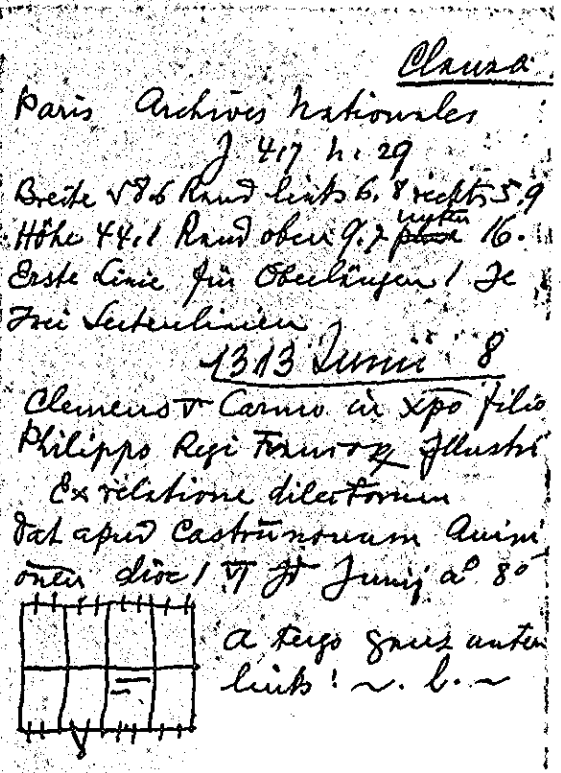 Clausa.
Paris Archives Nationales
J. 417 n. 29
Breite 58.6 Rand links 6.8 rechts 5.9
Höhe 44.1 Rand oben 9.7 unten 16.
Erste Linie für Oberlängen / Je
zwei Seitenlinien
1313 Junii 8
Clemens V Carmo in xpo filio
Philippo Regi Francorꝝ Illustri
Ex relatione dilectorum
Dat apud Castrunouum Auini
onen dioc / VI Id Junij a° 8°
A tergo ganz unten
links! ~ . b. ~